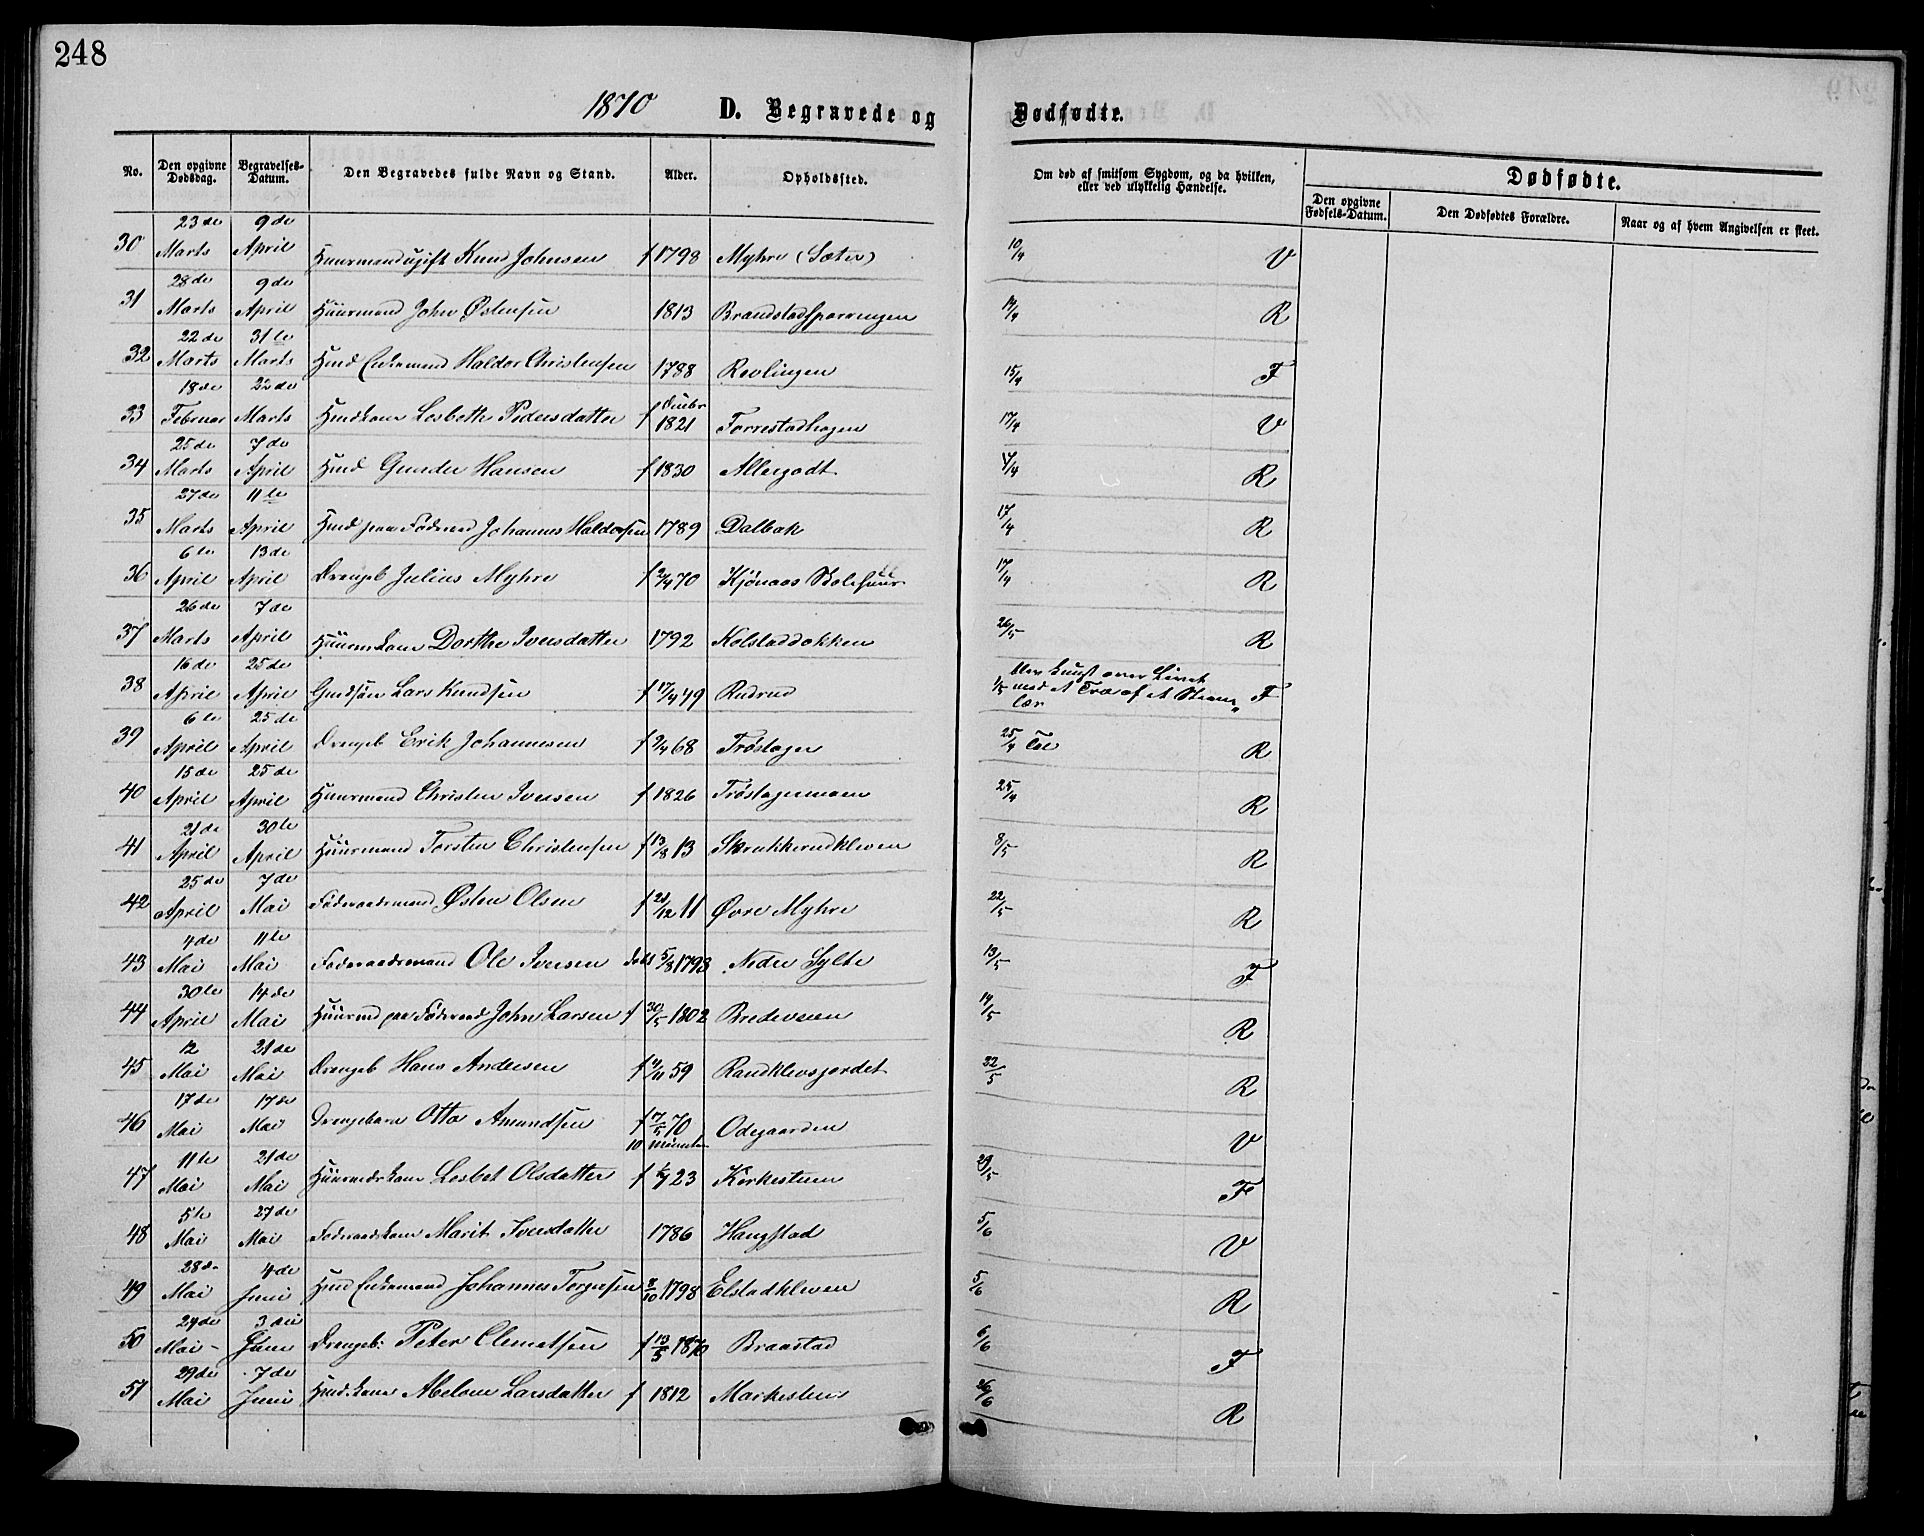 248
1870 D. Begravede og Dødfødte.
No. Den opgivne Dødsdag. Begravelses-Datum. Den Begravedes fulde Navn og Stand. Alder. Opholdssted. Om død af smitsom Sygdom, og da hvilken, eller ved ulykkelig Hændelse. Dødfødte.
Den opgivne Fødsels-Datum. Den Dødfødtes Forældre. Naar og af hvem Angivelsen er skeet.
30 23de Marts 9de April Knud Johnsen f 1798 Myhre (Sæter) 10/4 V
31 28de Marts 9de April Huusmand John Østensen 1813 Brandstadsporringen 14/4 R
32 22de Marts 31te Marts Hmd Enkemand Haldor Christensen 1788 Revlingen 15/4 F
33 18de Februar 22de Marts Hmdskone Lisbeth Pedersdatter f 1821 Forrestadhagen 17/4 V
34 25de Marts 7de April Hmd Gunder Hansen f 1830 Allergodt R
35 27de Marts 11te April Hmd paa Føderaad Johannes Haldorsen 1789 Dalbak 17/4 R
36 6te April 13de April Drengeb Julius Myhre f 2/4 70 Kjönaas 17/4 R
37 26de Marts 7de April Dorthe Iversdatter 1792 Kolstadløkken 26/5 R
38 16de April 25de April Gmdsøn Lars Knudsen f 17/4 49 Rudrud 1/5 over Livet med et Træ af et F
39 6te April 25de April Drengeb Erik Johannesen f 9/4 68 Trøstager 25/4 R
40 15de April 25de April Huusmand Christen Iversen f 1826 Trøstagermoen 25/4 R
41 21de April 30te April Huusmand Torsten Christensen f 13/8 13 Skrukkerudkleven 8/5 R
42 25de April 7de Mai Føderaadsmand Østen Olsen f 21/12 11 Øvre Myhre 22/5 R
43 4de Mai 11te Mai Føderaadsmand Ole Iversen født 5/8 1793 Nedre Sylte 13/5 F
44 30te April 14de Mai Huusmd paa Føderaad John Larsen f 30/5 1802 Bredeveien 14/5 R
45 12 Mai 21de Mai Drengeb Hans Andersen f 4/11 59 Randklevsjordet 22/5 R
46 17de Mai 17de Mai Drengebarn Otto Amundsen f 17/5 70 10 Minuter Odegaarden V
47 11te Mai 21de Mai Lisbet Olsdatter f 23 Kirkestuen 29/5 F
48 5te Mai 27de Mai Føderaadskone Marit Iversdatter 1786 Haugstad 5/6 V
49 28de Mai 4de Juni Hmd Enkemand Johannes Torgersen 4/10 1798 Elstadkleven 5/6 R
50 24de Mai - 3die Juni Drengeb: Peter Clemetsen f 13/5 1870 Braastad 6/6 F
51 29de Mai 7de Juni Hmdskone Abelone Larsdatter f 1812 Markestuen 26/6 R